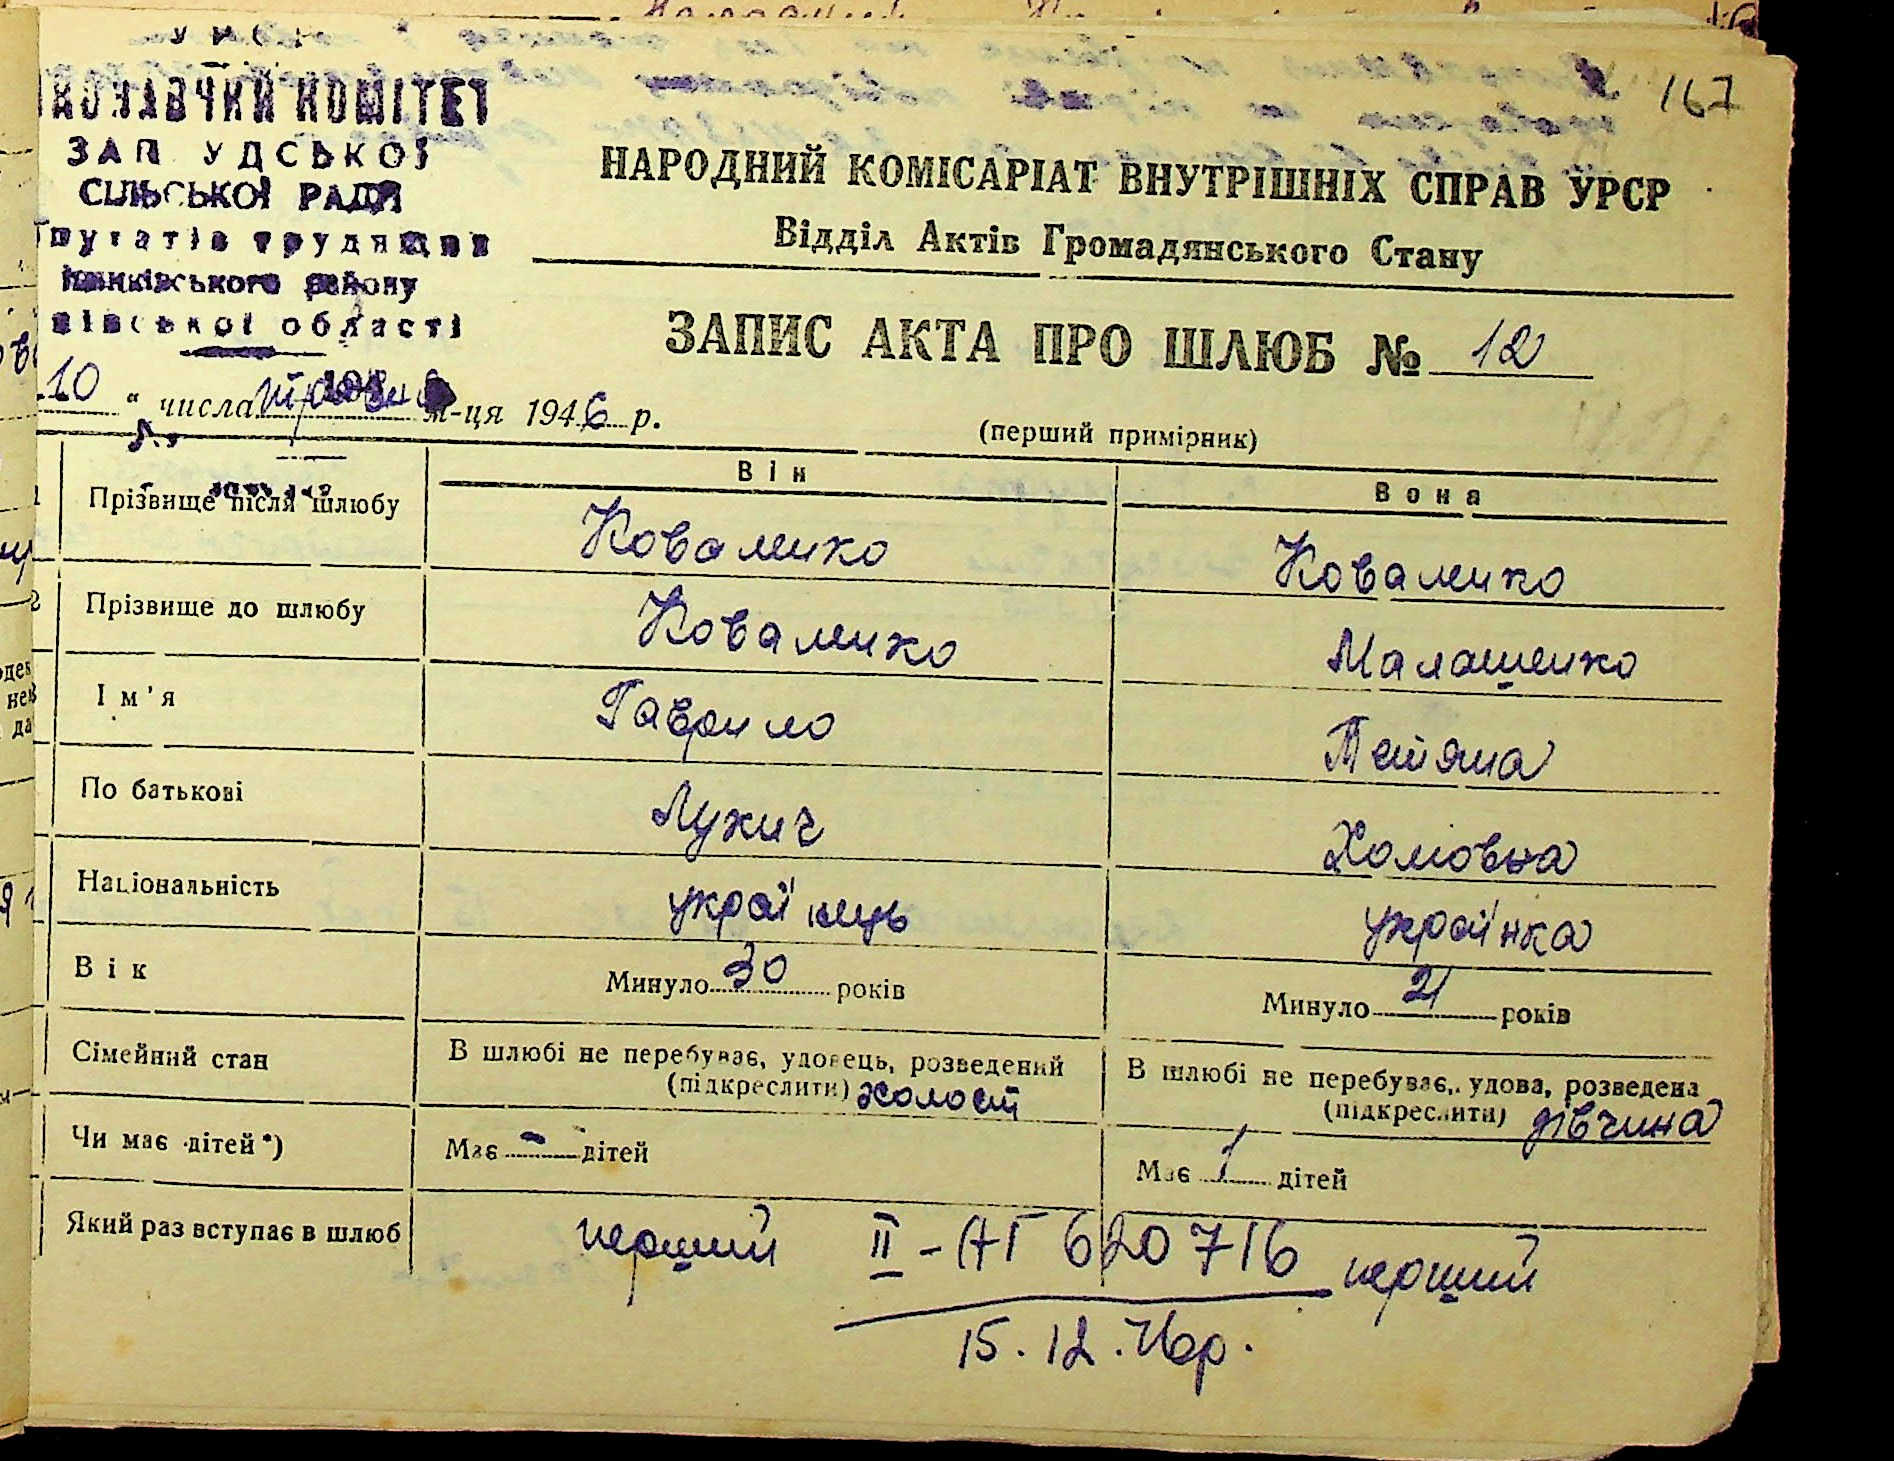 167
У Р С Р
КОМІТЕТ
СІЛЬСЬКОЇ РАДИ
трудящих
Іванківського району
області
НАРОДНИЙ КОМІСАРІАТ ВНУТРІШНІХ СПРАВ УРСР
Відділ Актів Громадянського Стану
ЗАПИС АКТА ПРО ШЛЮБ № 12
10 " числа травня м-ця 1946 р.
(перший примірник)
Він
Вона
Прізвище після шлюбу Коваленко Коваленко
Прізвище до шлюбу Коваленко Малашенко
Ім'я Гаврило Тетяна
По батькові Лукич Хомовна
Національність українець українка
Вік Минуло 30 років Минуло 21 років
Сімейний стан В шлюбі не перебуває, удовець, розведений В шлюбі не перебуває, удова, розведена
(підкреслити) холост (підкреслити) дівчина
Чи має дітей*) Має - дітей Має 1 дітей
Який раз вступає в шлюб перший II-АГ 620716 перший
15.12.76р.